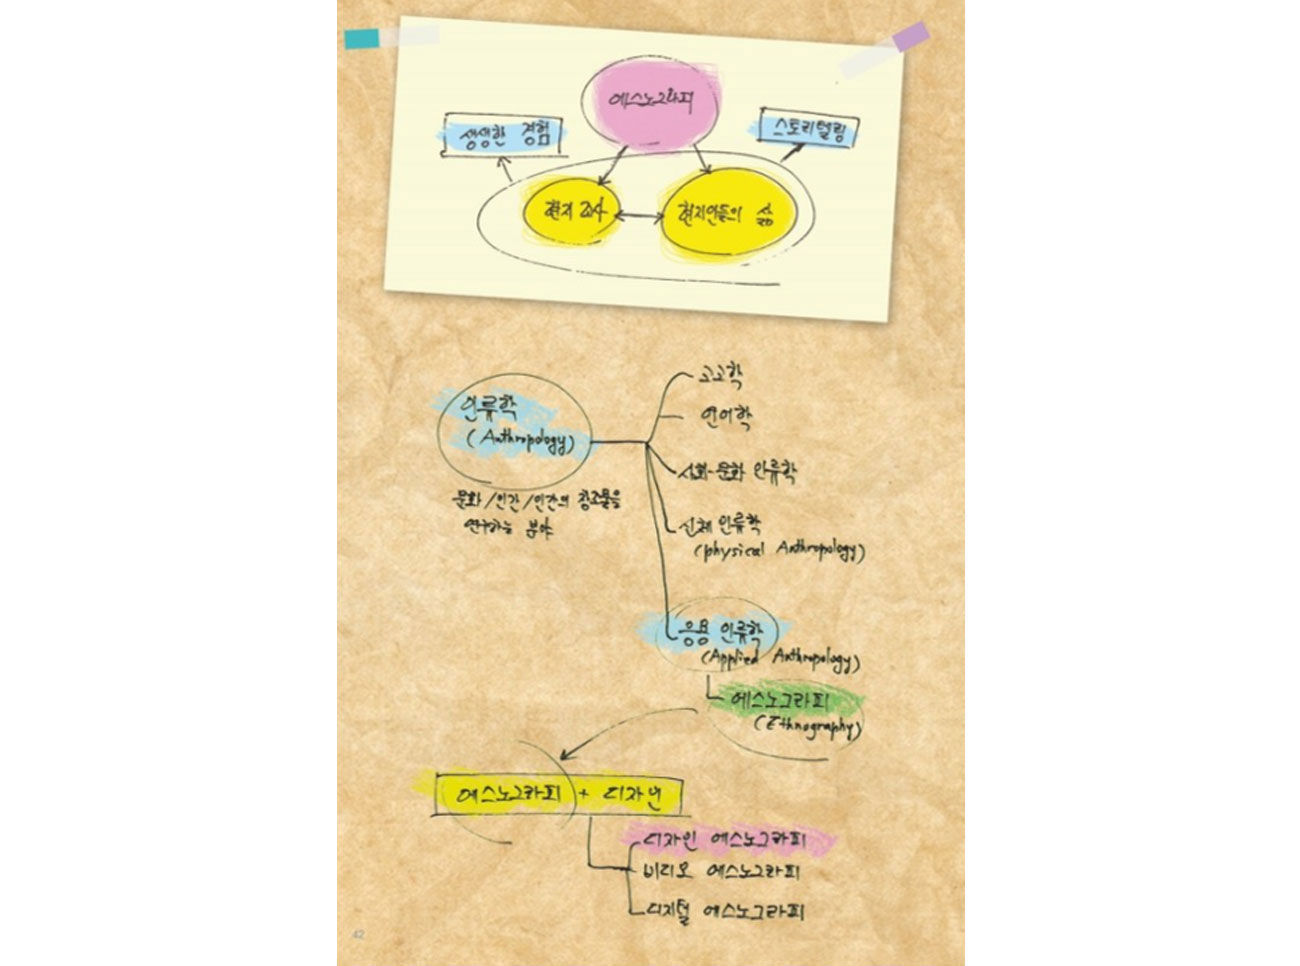 에스노그라피
생생한 경험
스토리텔링
현지 조사
현지인들의 삶
인류학
(Anthropology)
문화/인간/인간의 창조물을
연구하는 분야
고고학
언어학
사회-문화 인류학
신체 인류학
(physical Anthropology)
응용 인류학
(Applied Anthropology)
에스노그라피
(Ethnography)
에스노그라피 + 디자인
디자인 에스노그라피
비디오 에스노그라피
디지털 에스노그라피
42